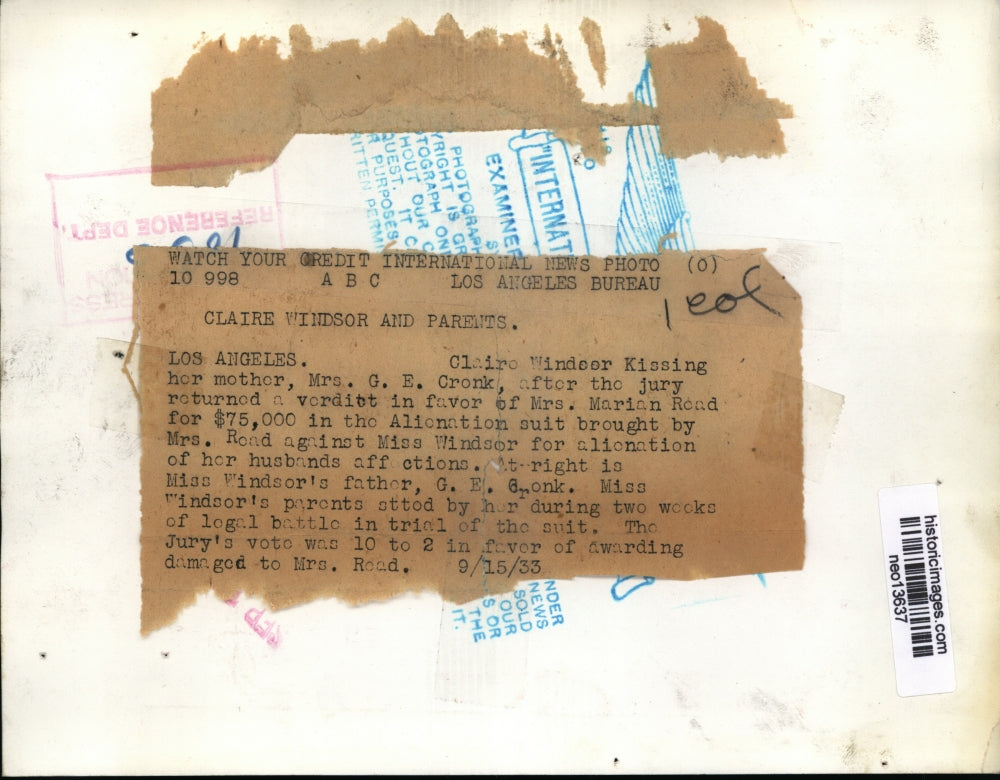 REFERENCE DEPT.
PHOTOGRAPH
YRIGHT IS GR
TOGRAPH ON
HOUT OUR C
QUEST. IT C
R PURPOSES
RITTEN PERMI
"INTERNAT
EXAMINER
WATCH YOUR CREDIT INTERNATIONAL NEWS PHOTO (O)
10 998 A B C LOS ANGELES BUREAU
1 col
CLAIRE WINDSOR AND PARENTS.
LOS ANGELES. Claire Windsor Kissing
her mother, Mrs. G. E. Cronk, after the jury
returned a verdict in favor of Mrs. Marian Read
for $75,000 in the Alienation suit brought by
Mrs. Read against Miss Windsor for alienation
of her husbands aff ctions. At right is
Miss Windsor's father, G. E. Cronk. Miss
Windsor's parents sttod by her during two weeks
of legal battle in trial of the suit. The
Jury's vote was 10 to 2 in favor of awarding
damaged to Mrs. Read. 9/15/33
NDER
NEWS
SOLD
OUR
S OR
THE
IT.
SEP
historicimages.com
neo13637